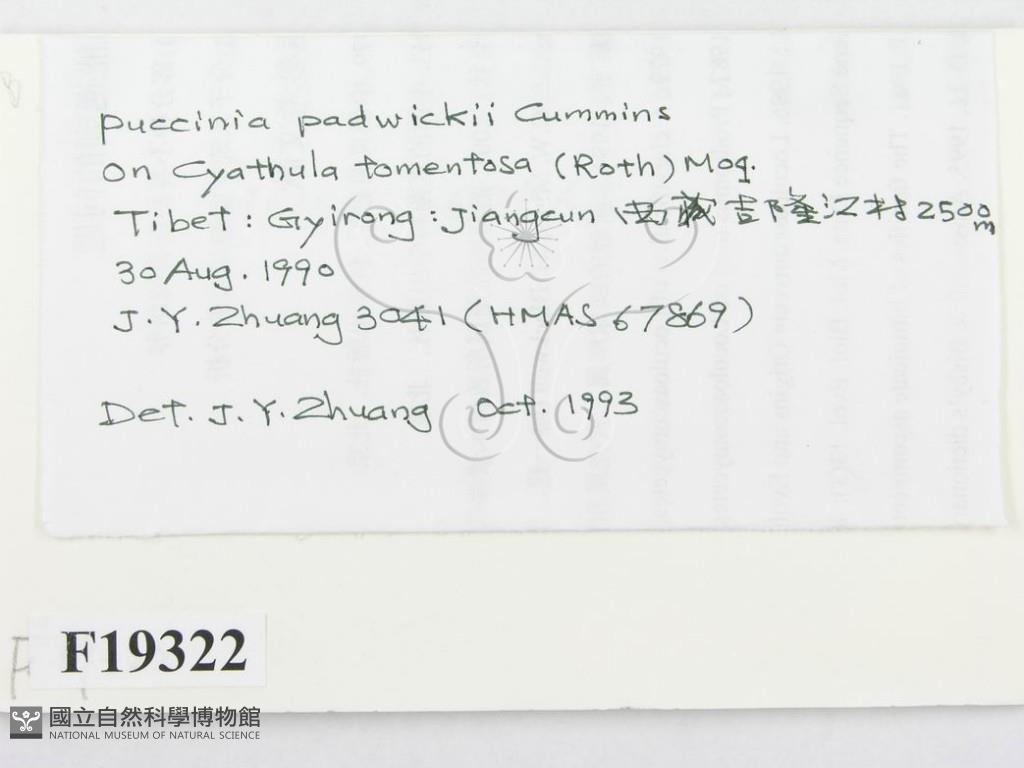 Puccinia padwickii Cummins
On Cyathula tomentosa (Roth) Moq.
Tibet: Gyirong: Jiangcun 西藏吉隆江村 2500m
30 Aug. 1990
J. Y. Zhuang 3041 (HMAS 67869)
Det. J. Y. Zhuang Oct. 1993
F19322
國立自然科學博物館
NATIONAL MUSEUM OF NATURAL SCIENCE